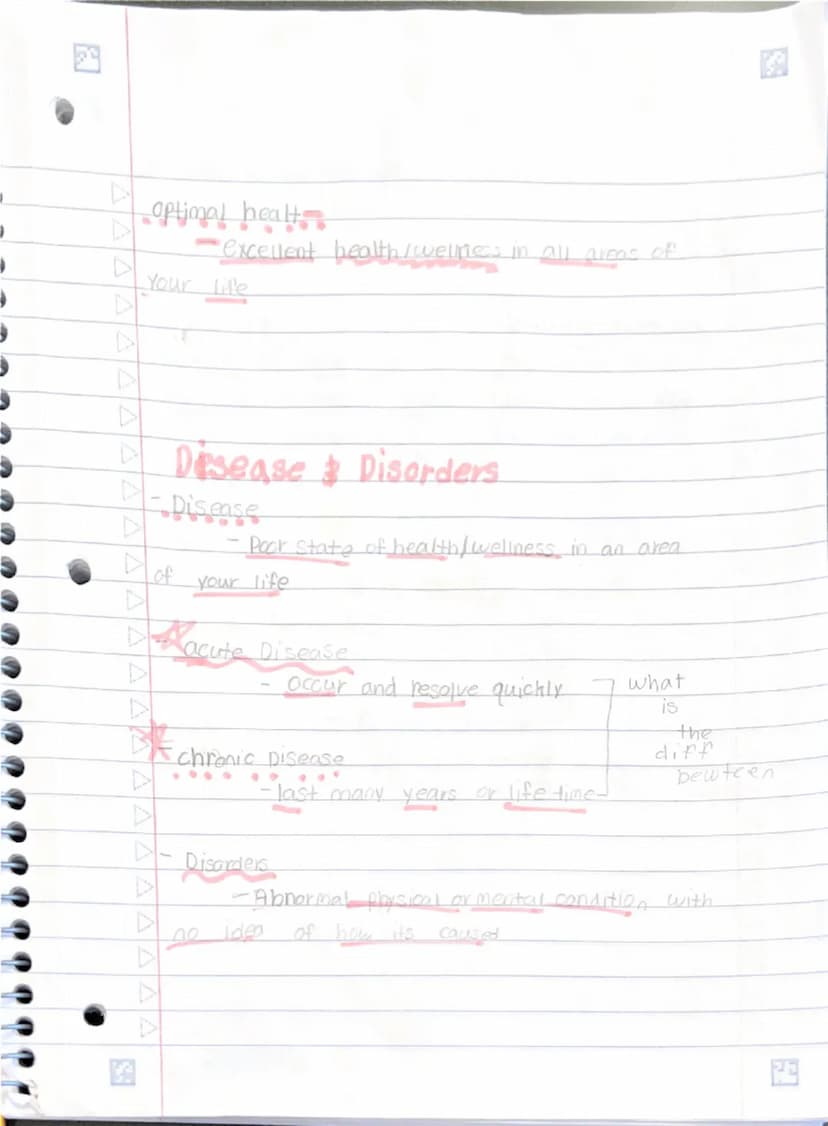 optimal healt
- excellent health/wellness in all areas of
your life
Disease & Disorders
- Disease
- Poor state of health/wellness in an area
of your life
- acute Disease
- occur and resolve quickly
what
is
the
diff
bewteen
- chronic Disease
- last many years or life time
- Disorders
- Abnormal physical or mental condition with
no idea of how its caused